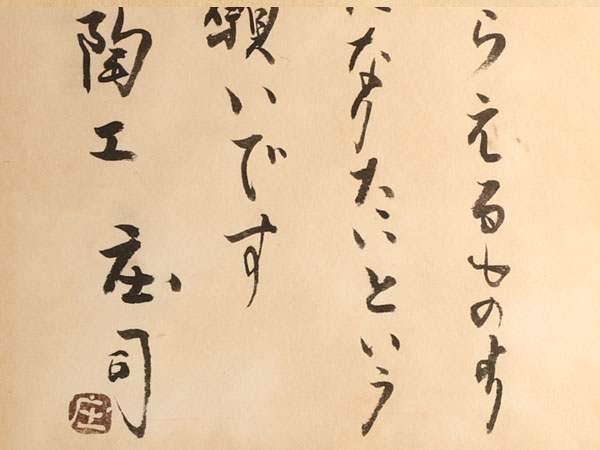 らえるもの
なりたいという
願いです
陶工 庄司
庄